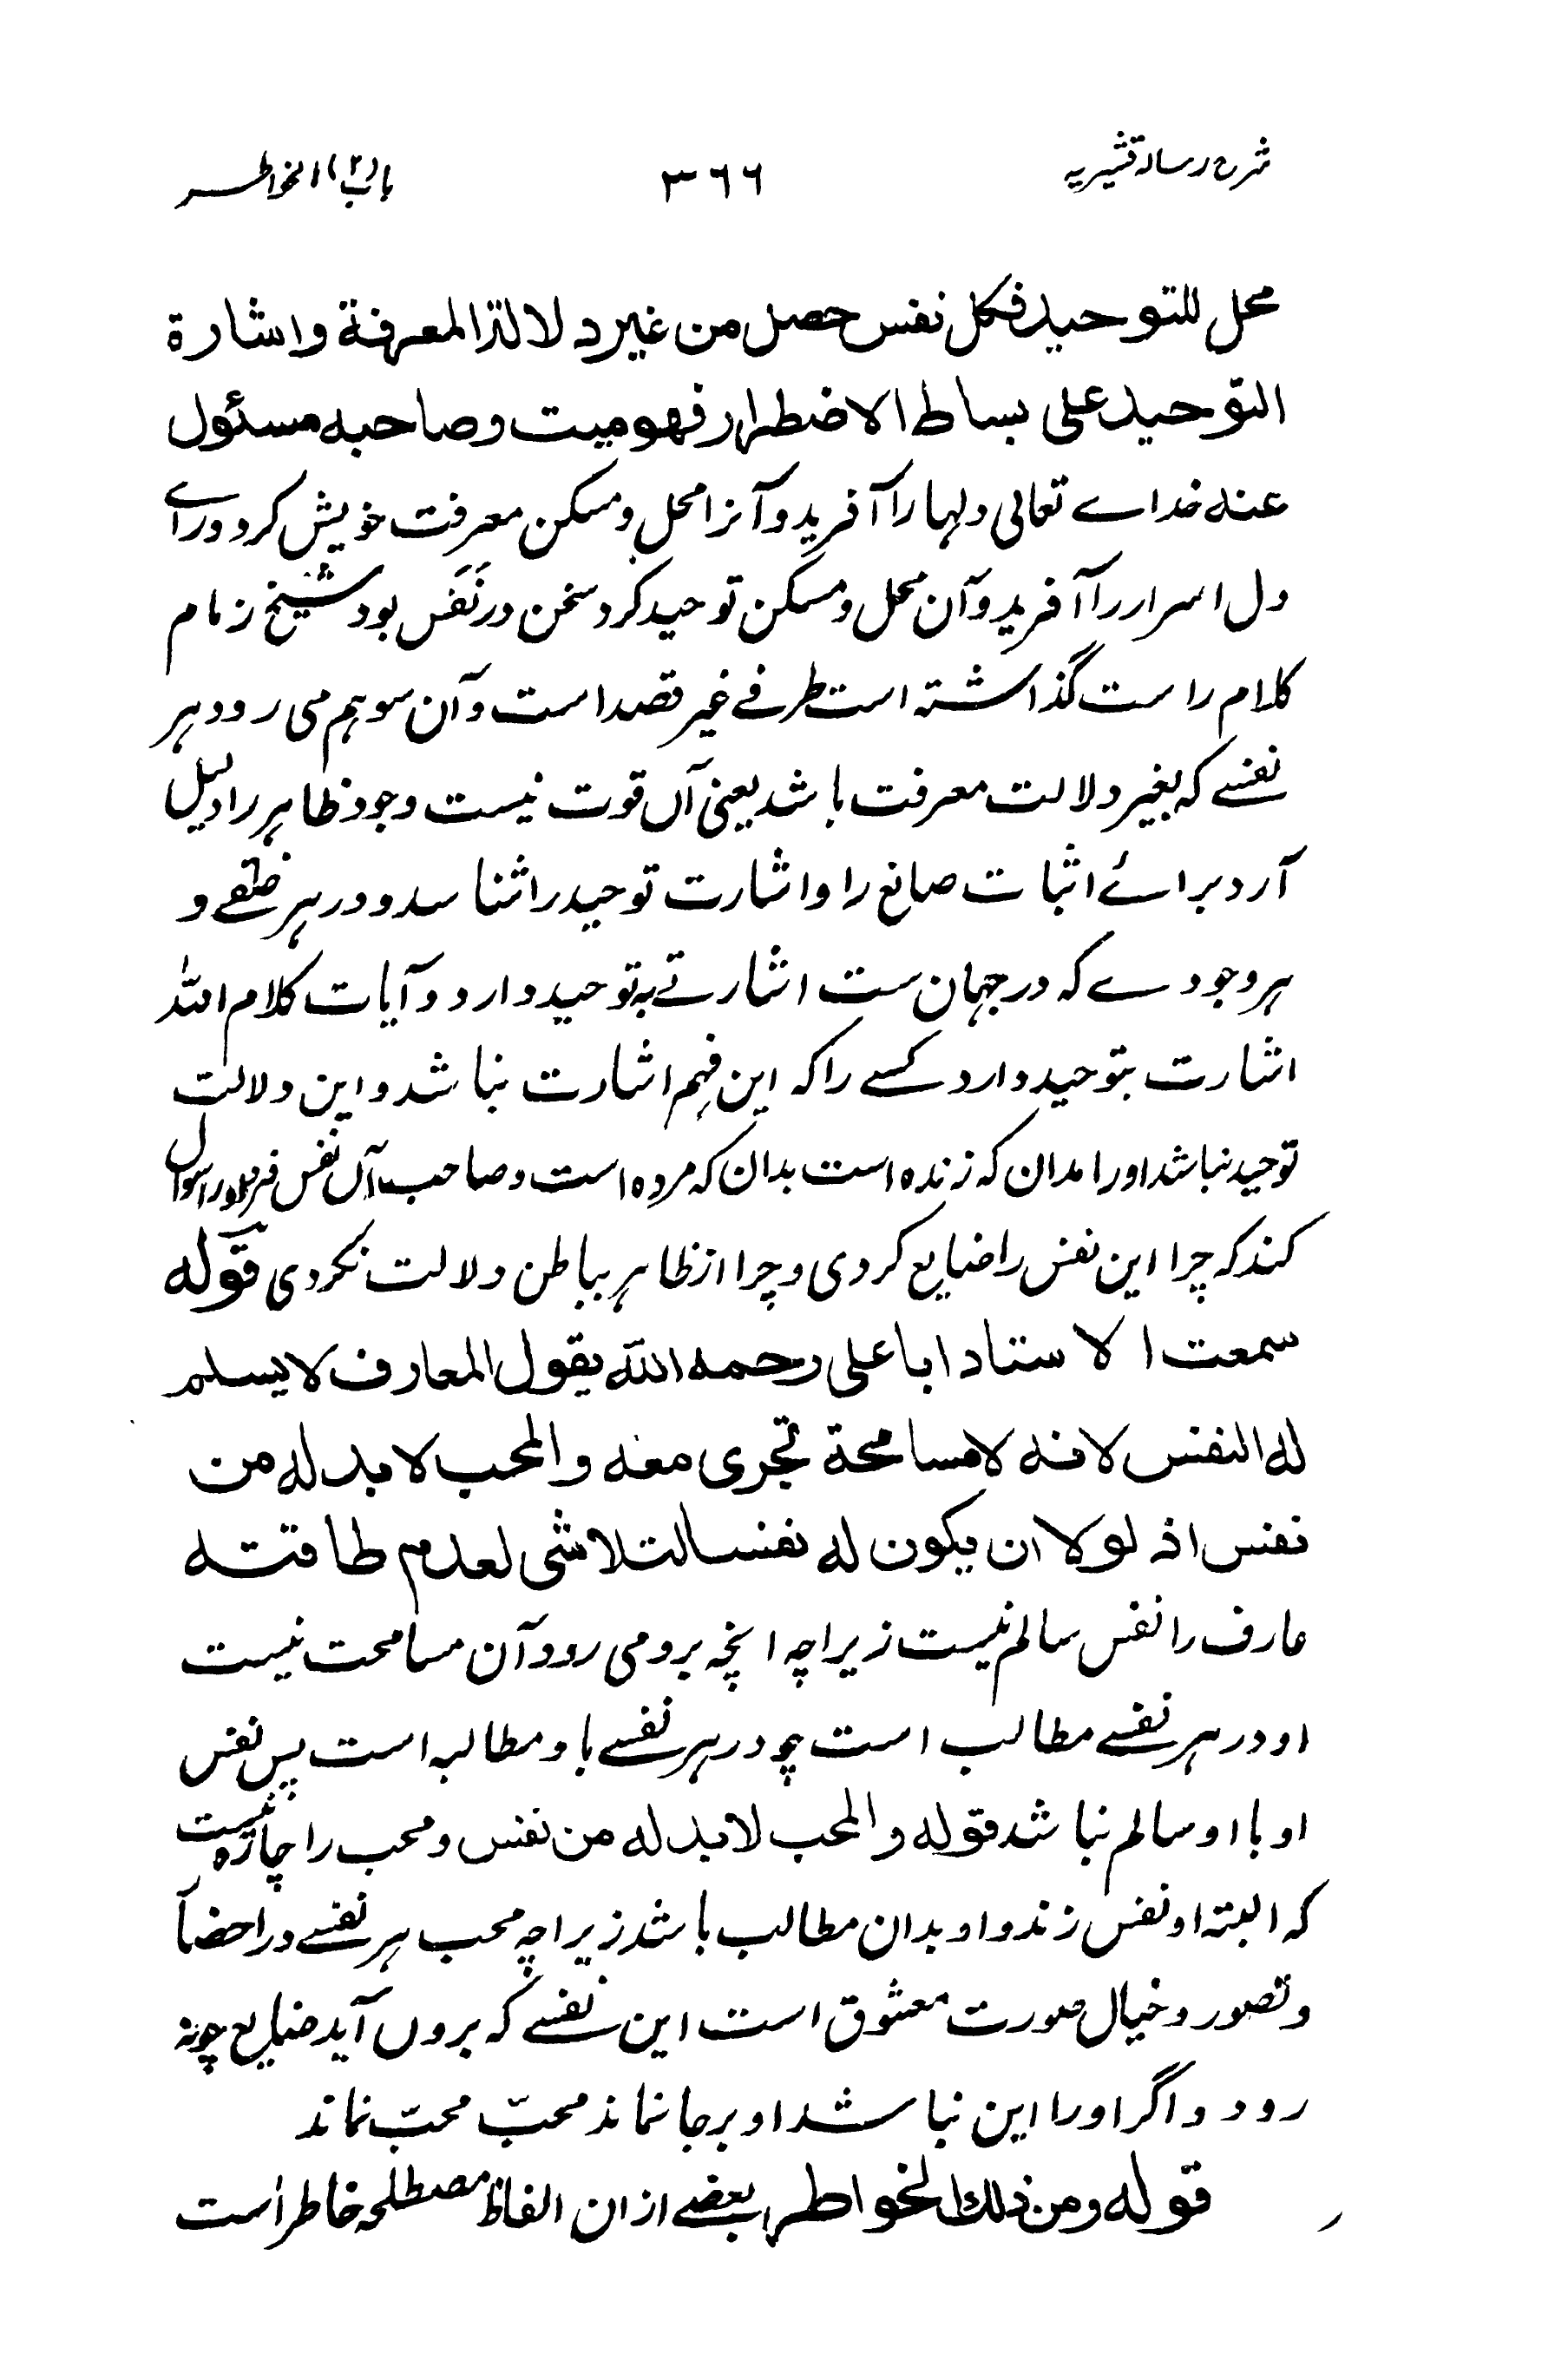 شرح رسالہ قشیریہ
۳۶۶
باب (۲) الخواطر
محل للتوحید فکل نفس حصل من غیر دلالة المعرفة و اشارة
التوحید علی بساط الاضطرار فهو میت و صاحبه مسئول
عنه خداے تعالی دلہا را آفرید و آنرا محل و مسکن معرفت خویش کرد وراے
دل اسرار را آفرید و آن محل و مسکن توحید کرد سخن در نَفَس بود شیخ زمام
کلام راست گذاشته است طرفے غیر قصد است و آن سو ہم می رود ہر
نفسے که بغیر دلالت معرفت باشد یعنی آں قوت نیست وجود ظاہر را دلیل
آرد براۓ اثبات صانع را و اشارت توحید را شناسد و در ہر خلقے و
ہر وجودے که در جہان ست اشارتے به توحید دارد و آیات کلام الله
اشارت بتوحید دارد کسے را که این فہم اشارت نباشد و این دلالت
توحید نباشد او را مدان که زنده است بدان که مرده است و صاحب آں نفس را سوال
کند که چرا این نفس را ضایع کردی و چرا از ظاہر بباطن دلالت نکردی قوله
سمعت الاستاد ابا علی رحمه الله یقول المعارف لا یسلم
له النفس لانه لا مسامحة تجری معه والمحب لا بد له من
نفس اذ لو لا ان یکون له نفسا لتلاشی لعدم طاقته
عارف را نفس سالم نیست زیراچه انچه برو می رود آن مسامحت نیست
او در ہر نفسے مطالب است چو در ہر نفسے با و مطالبه است پس نفس
او با او سالم نباشد قوله والمحب لا بد له من نفس و محب را چاره نیست
که البتہ او نفس زند و او بدان مطالب باشد زیراچه محب ہر نفسے در احضار
و تصور و خیال صورت معشوق است این نفسے که بروں آید ضایع چونه
رود و اگر او را این نباشد او برجا نماند محبّ محبّ نماند
قوله ومن ذلك الخواطر بعضے از ان الفاظ مصطلحه خاطر است